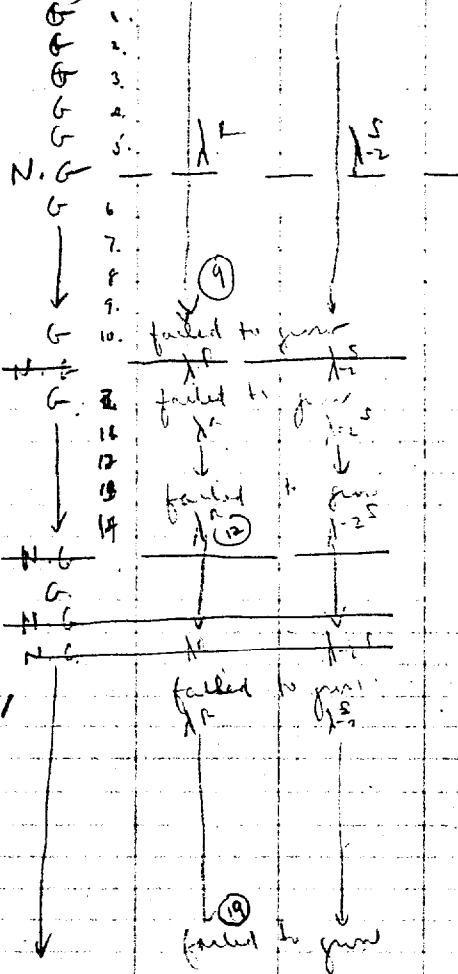 G 1.
G 2.
G 3.
G 4.
G 5.
λR λ-2S
N. G
G 6
7.
8
9.
9
G 10. failed to grow
N. G λR λ-2S
G failed to grow
16 λR λ-2S
17
18 failed to grow
19 λR 12 λ-2S
N. G
G.
N G
N. G λR λ-2S
failed to grow
λR λ-2S
19
failed to grow